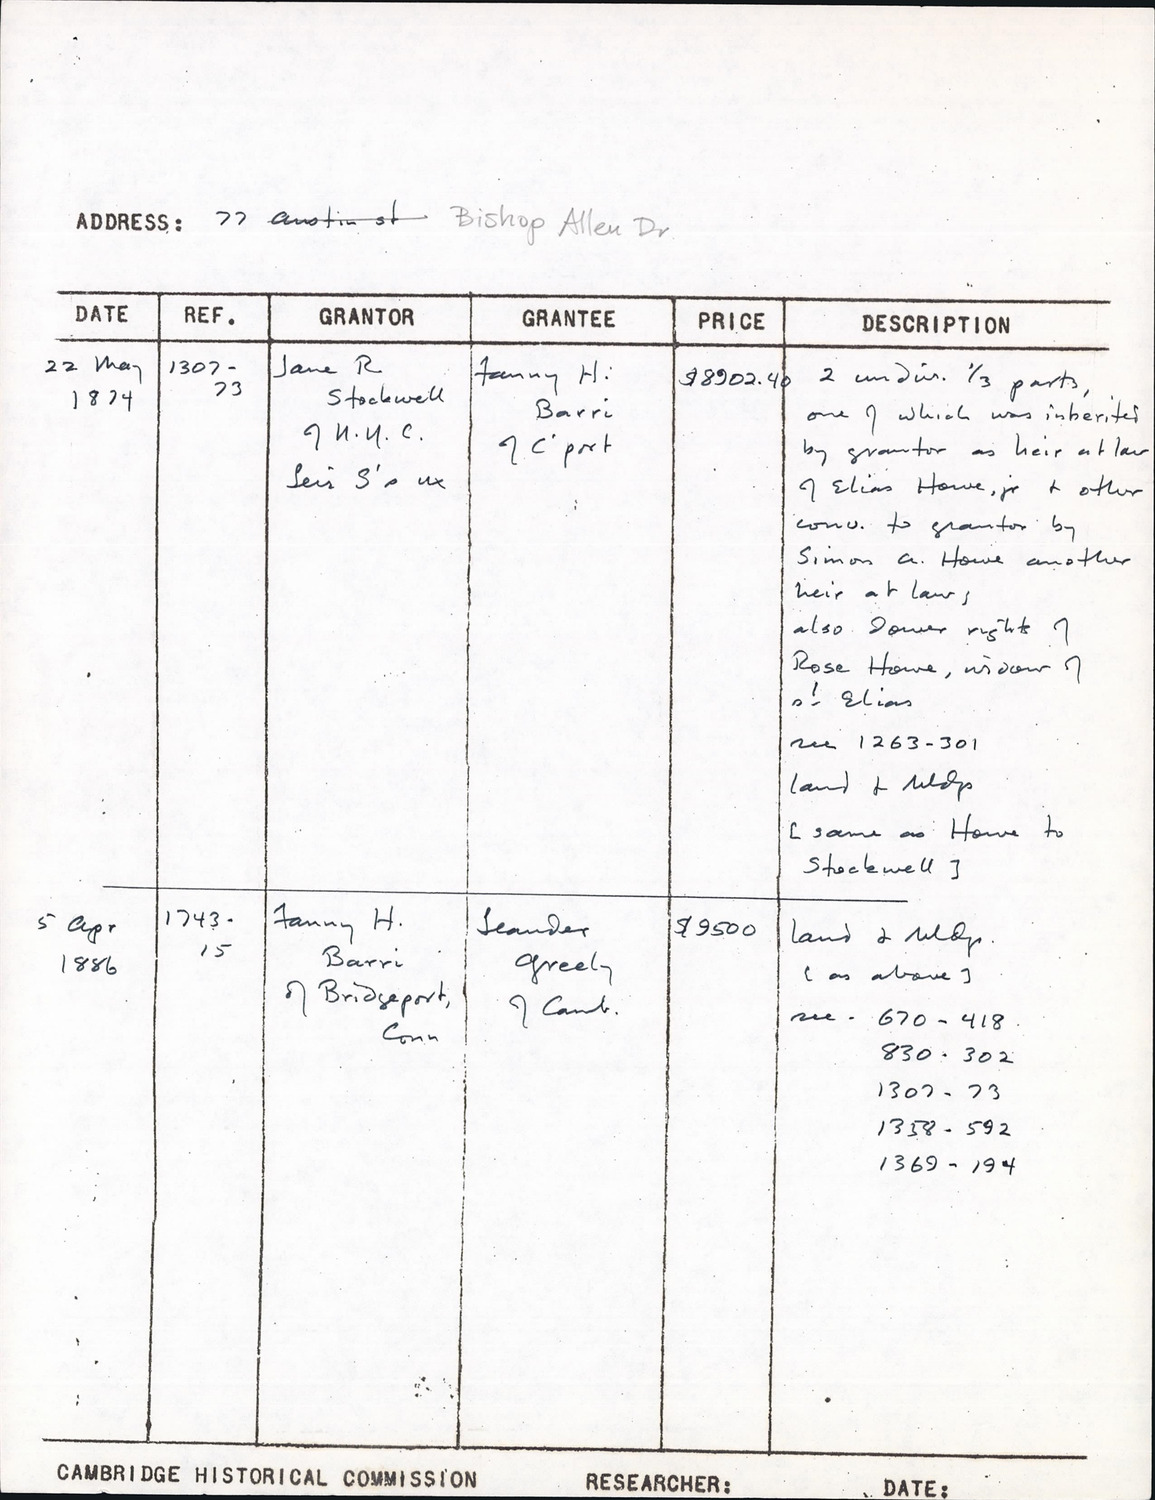 ADDRESS: 77 Austin st Bishop Allen Dr
DATE REF. GRANTOR GRANTEE PRICE DESCRIPTION
22 May
1874
1307-
73
Jane R
Stockwell
of N.Y.C.
Levi S's ux
Fanny H.
Barri
of C'port
$8902.40
2 undiv. 1/3 parts,
one of which was inherited
by grantor as heir at law
of Elias Howe, jr & other
conv. to grantor by
Simon A. Howe another
heir at law;
also Dower rights of
Rose Howe, widow of
sd Elias
see 1263-301
land & bldgs
[same as Howe to
Stockwell]
5 Apr
1886
1743-
15
Fanny H.
Barri
of Bridgeport,
Conn
Leander
Greely
of Camb.
$9500
land & bldgs.
[as above]
see - 670-418
830-302
1307-73
1358-592
1369-194
CAMBRIDGE HISTORICAL COMMISSION RESEARCHER: DATE: